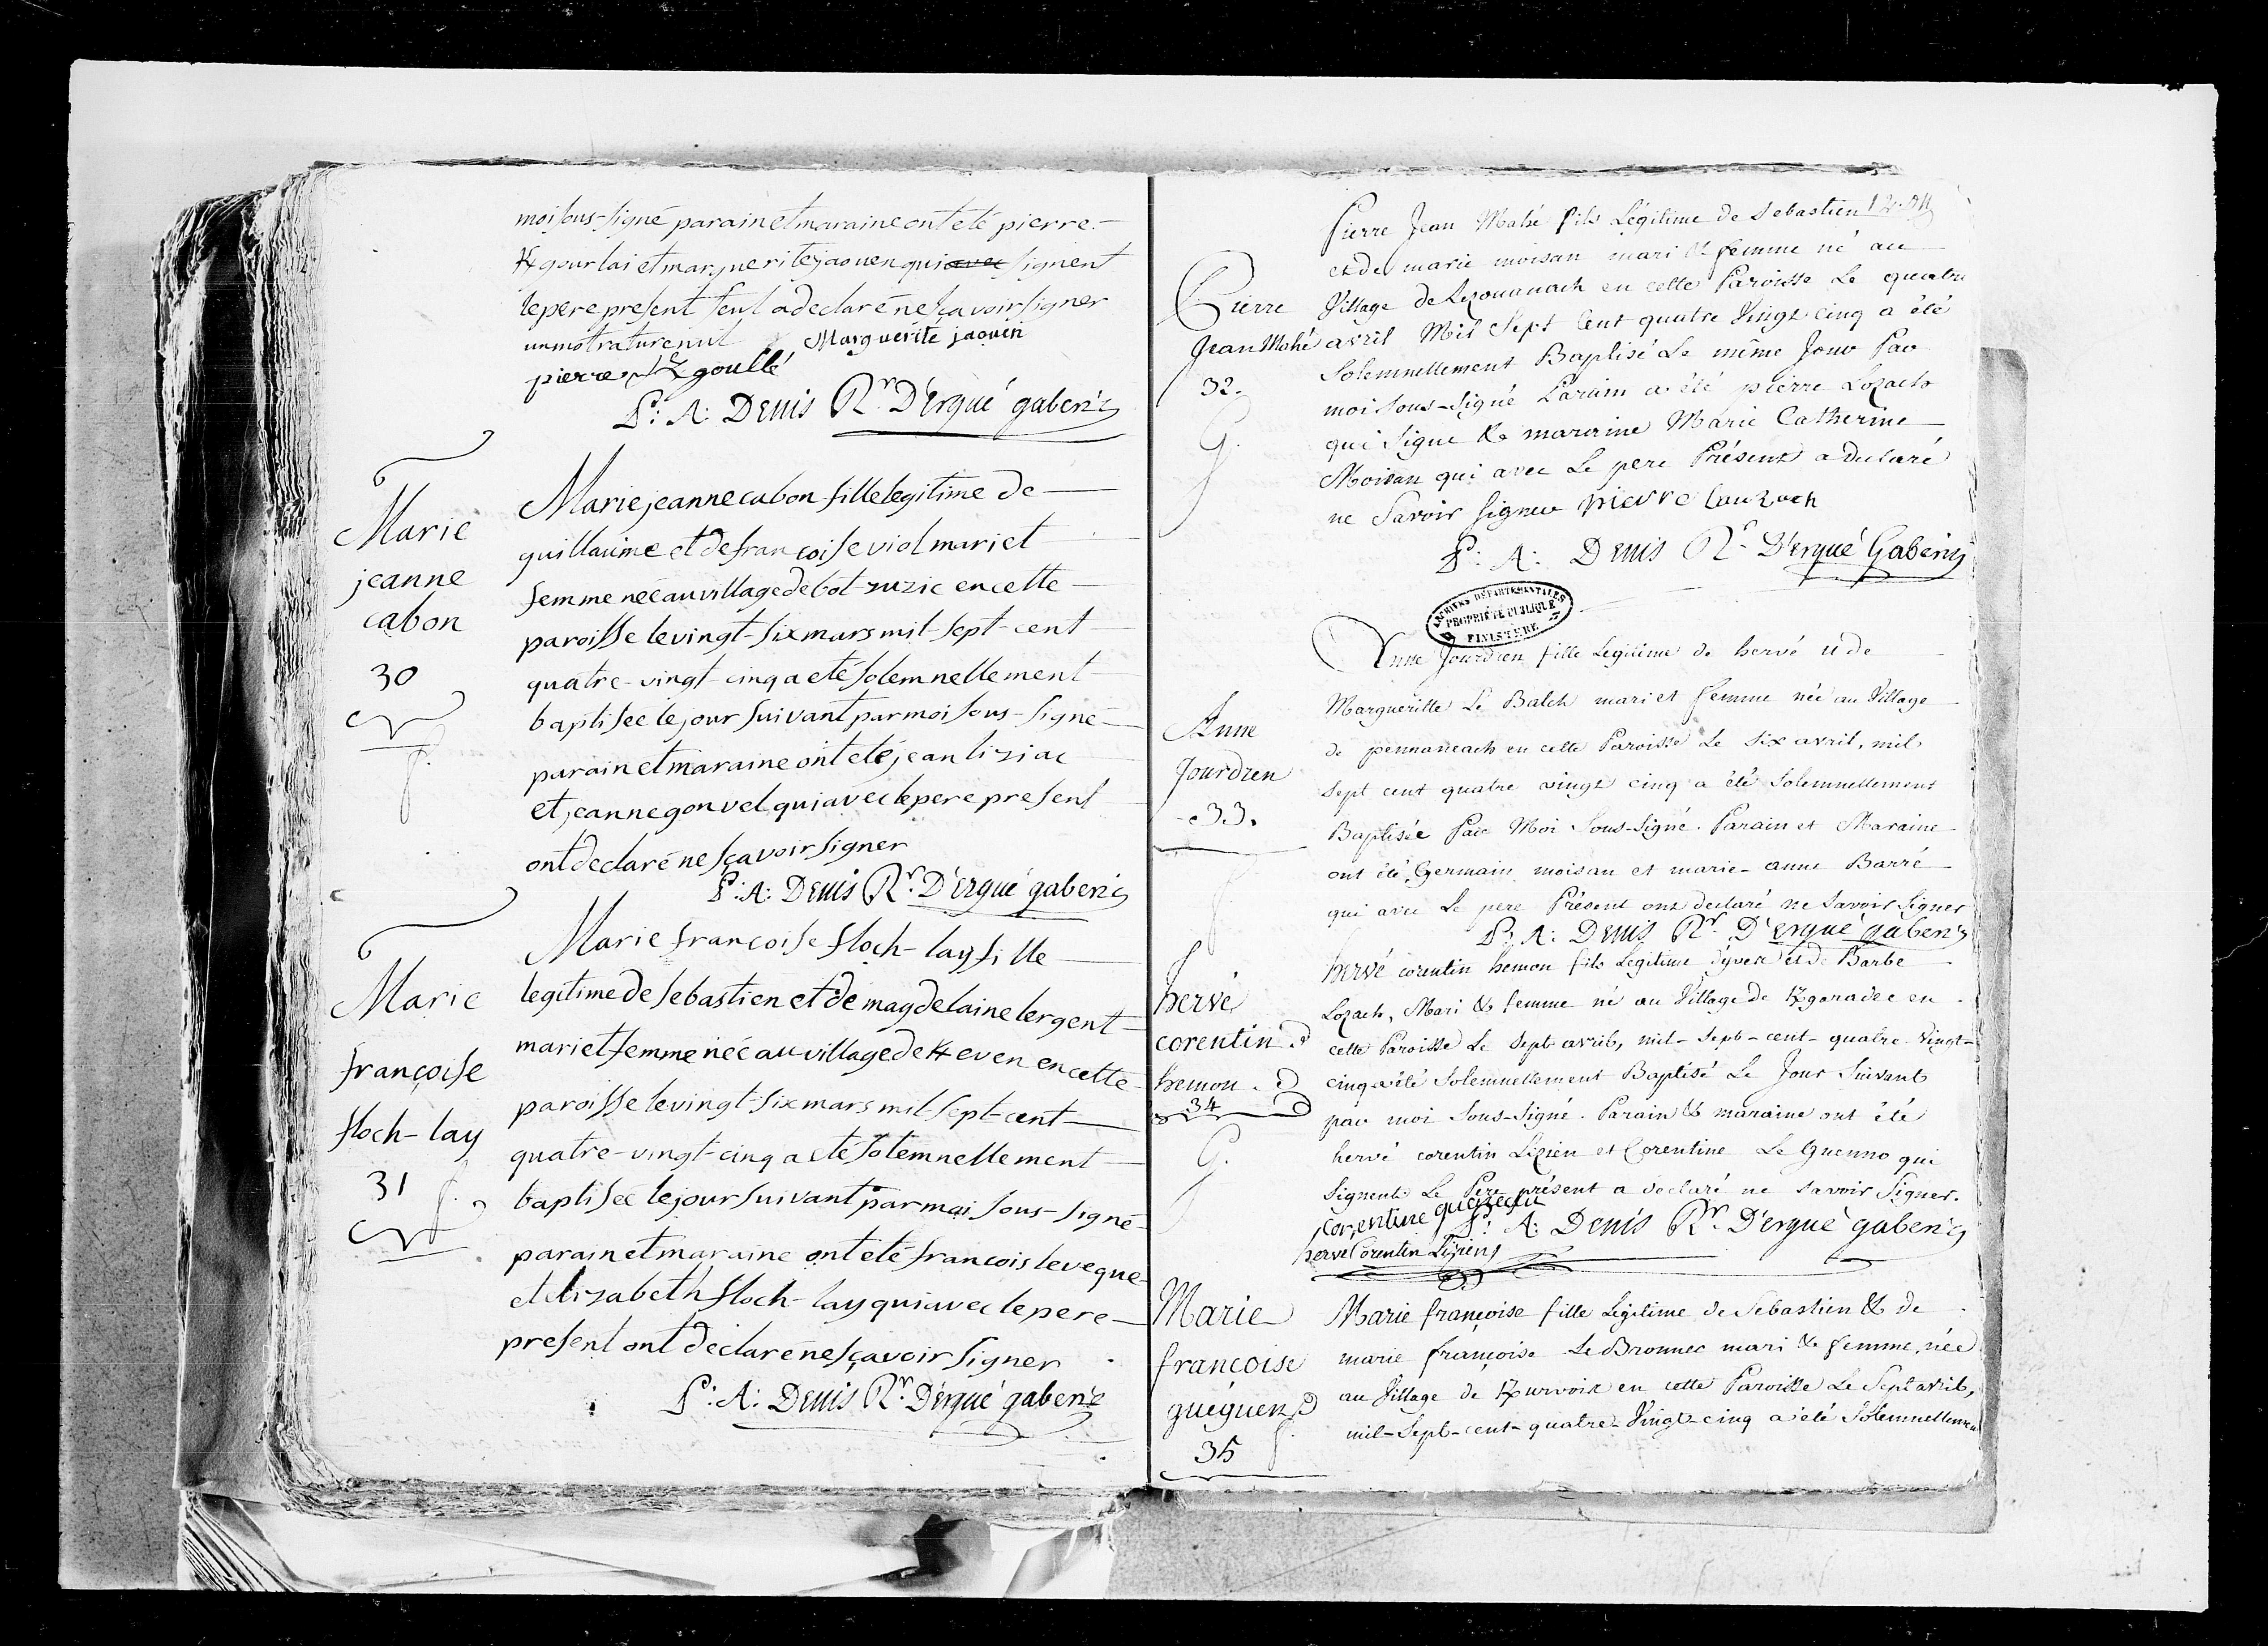 moi sous-signé parain et maraine ont eté pierre
K/gourlai et marguerite jaouen qui avec signent
le pere present seul a declaré ne sçavoir signer
un mot raturé nul Marguerite jaouen
pierre K/goullé
P: A: Denis Rr. D'Ergué gaberic
Marie
jeanne
cabon
30
Marie jeanne cabon fille legitime de
guillaume et de francoise viol mari et
femme neé au village de bot-zuzic en cette
paroisse le vingt-six mars mil-sept-cent
quatre-vingt-cinq a eté solemnellement
baptiseé le jour suivant par moi sous-signé
parain et maraine ont eté jean liziac
et jeanne gonvel qui avec le pere present
ont declaré ne sçavoir signer
P: A: Denis Rr. D'Ergué gaberic
Marie
françoise
floch-lay
31
Marie francoise floch-lay fille
legitime de sebastien et de magdelaine lergent
mari et femme neé au village de K/even en cette
paroisse le vingt-six mars mil sept-cent
quatre-vingt-cinq a eté solemnellement
baptiseé le jour suivant par moi sous-signé
parain et maraine ont eté francois leveque
et elizabeth floch-lay qui avec le pere
present ont declaré ne sçavoir signer
P: A: Denis Rr. D'ergué gaberic
Pierre
Jean Mahé
32.
G.
Pierre Jean Mahé fils Légitime de Sebastien
et de marie moisan mari & femme né au
Village de Lezouanach en cette Paroisse Le quatre
avril Mil Sept Cent quatre Vingt cinq a été
Solemnellement Baptisé Le même Jour Par
moi Sous-signé Parain a été pierre Lozach
qui signe & maraine Marie Catherine
Moisan qui avec Le pere Présent a declaré
ne Savoir signer pierre lauzach
P: A: Denis Rr. D'ergué Gaberic
ARCHIVES DÉPARTEMENTALES
PROPRIÉTÉ PUBLIQUE
FINISTERE
Anne
Jourdren
33.
Anne Jourdren fille Legitime de hervé et de
Margueritte Le Balch mari et femme née au Village
de pennaneach en cette Paroisse Le six avril, mil
sept cent quatre vingt cinq a été Solemnellement
Baptisée Par Moi Sous-Signé. Parain et Maraine
ont été Germain moisan et marie-anne Barré
qui avec Le pere Présent ont declaré ne savoir signer
P: A: Denis Rr. D'ergué gaberic
hervé
corentin
hemon
34
G.
hervé corentin hemon fils Legitime d'yven et de Barbe
Lozach, Mari & femme né au Village de K/garadec en
cette Paroisse Le sept avril, mil-sept-cent-quatre-Vingt-
cinq a été Solemnellement Baptisé Le Jour Suivant
par moi Sous-Signé. Parain & maraine ont été
hervé corentin Lizien et Corentine Le Guenno qui
Signent Le Pere présent a declaré ne savoir Signer.
corentine
P: A: Denis Rr. D'ergué gaberic
hervé Corentin Lizien
Marie
francoise
guéguen
35
Marie françoise fille Légitime de Sébastien & de
marie françoise Le Bronnec mari & femme, née
au Village de K/urvois en cette Paroisse Le Sept avril,
mil-Sept-cent-quatre-Vingt-cinq a été Solemnellement